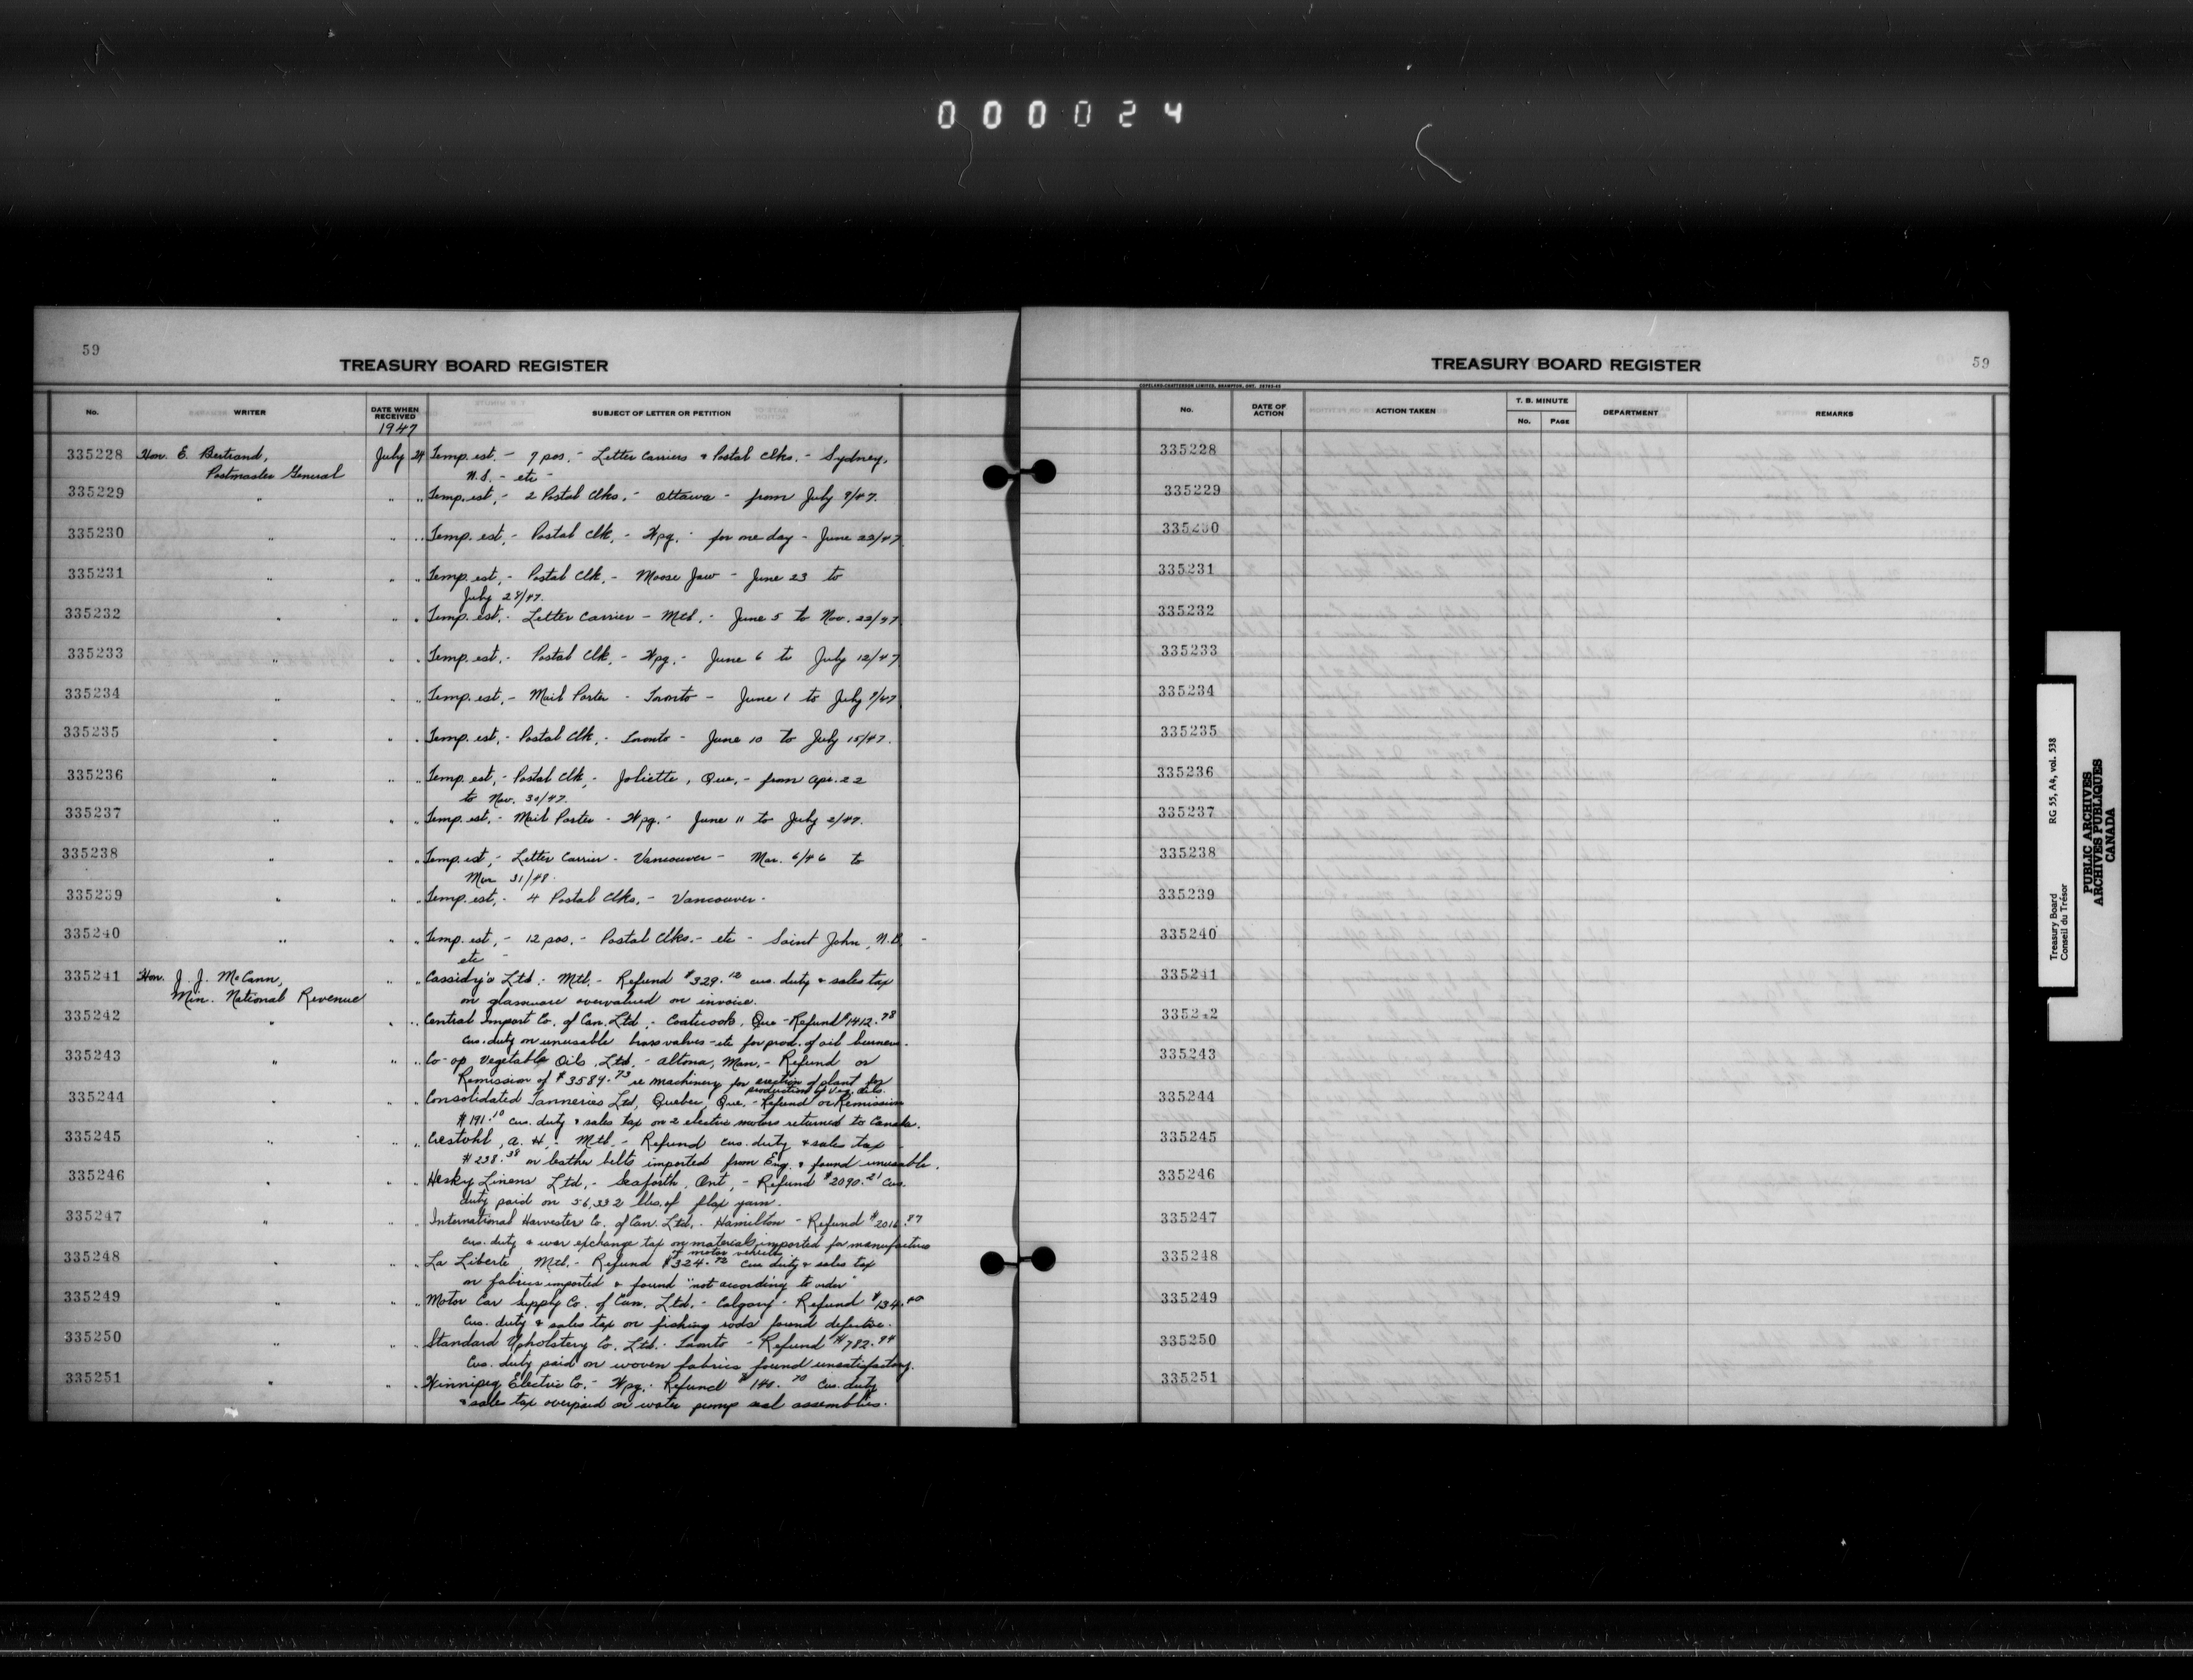 000024
59
TREASURY BOARD REGISTER
No. WRITER DATE WHEN RECEIVED SUBJECT OF LETTER OR PETITION
1947
335228 Hon. E. Bertrand, July 24 Temp. est. - 9 pos. - Letter Carriers & Postal Clks. - Sydney,
Postmaster General N.S. - etc
335229 " " " Temp. est. - 2 Postal Clks. - Ottawa - from July 8/47.
335230 " " " Temp. est. - Postal Clk. - Wpg. - for one day - June 23/47
335231 " " " Temp. est. - Postal Clk. - Moose Jaw - June 23 to
July 28/47.
335232 " " " Temp. est. - Letter Carrier - Mtl. - June 5 to Nov. 22/47
335233 " " " Temp. est. - Postal Clk. - Wpg. - June 6 to July 12/47
335234 " " " Temp. est. - Mail Porter - Toronto - June 1 to July 8/47
335235 " " " Temp. est. - Postal Clk. - Toronto - June 10 to July 15/47.
335236 " " " Temp. est. - Postal Clk. - Joliette, Que. - from Apr. 22
to Nov. 30/47.
335237 " " " Temp. est. - Mail Porter - Wpg. - June 11 to July 2/47.
335238 " " " Temp. est. - Letter Carrier - Vancouver - Mar. 6/46 to
Mar 31/48.
335239 " " " Temp. est. - 4 Postal Clks. - Vancouver -
335240 " " " Temp. est. - 12 pos. - Postal Clks. - etc - Saint John, N.B. -
etc -
335241 Hon. J. J. McCann, " " Cassidy's Ltd. - Mtl. - Refund $329.12 cus. duty & sales tax
Min. National Revenue on glassware overvalued on invoice.
335242 " " " Central Import Co. of Can. Ltd. - Coaticook, Que - Refund $1412.78
cus. duty on unusable brass valves - etc for prod. of oil burners.
335243 " " " Co-op Vegetable Oils Ltd. - Altona, Man. - Refund or
Remission of $3589.73 re machinery for erection of plant for
production of veg. oils.
335244 " " " Consolidated Tanneries Ltd, Quebec, Que. - Refund or Remission
$191.10 cus. duty & sales tax on 2 electric motors returned to Canada.
335245 " " " Crestohl, A. H. - Mtl. - Refund cus. duty & sales tax
$238.38 on leather belts imported from Eng. & found unusable.
335246 " " " Hesky Linens Ltd. - Seaforth, Ont. - Refund $2090.21 cus.
duty paid on 56,332 lbs. of flax yarn.
335247 " " " International Harvester Co. of Can. Ltd. - Hamilton - Refund $2016.87
cus. duty & war exchange tax on materials imported for manufacture
of motor vehicles
335248 " " " La Liberte, Mtl. - Refund $324.72 cus duty & sales tax
on fabrics imported & found "not according to order"
335249 " " " Motor Car Supply Co. of Can. Ltd. - Calgary - Refund $134.00
cus. duty & sales tax on fishing rods found defective.
335250 " " " Standard Upholstery Co. Ltd. - Toronto - Refund $782.94
Cus. duty paid on woven fabrics found unsatisfactory.
335251 " " " Winnipeg Electric Co. - Wpg. - Refund $140.70 cus. duty
& sales tax overpaid on water pump seal assemblies.
TREASURY BOARD REGISTER
59
COPELAND-CHATTERSON LIMITED, BRAMPTON, ONT.
No. DATE OF ACTION ACTION TAKEN T. B. MINUTE DEPARTMENT REMARKS
No. PAGE
335228
335229
335230
335231
335232
335233
335234
335235
335236
335237
335238
335239
335240
335241
335242
335243
335244
335245
335246
335247
335248
335249
335250
335251
Treasury Board RG 55, A4, vol. 538
Conseil du Trésor
PUBLIC ARCHIVES
ARCHIVES PUBLIQUES
CANADA